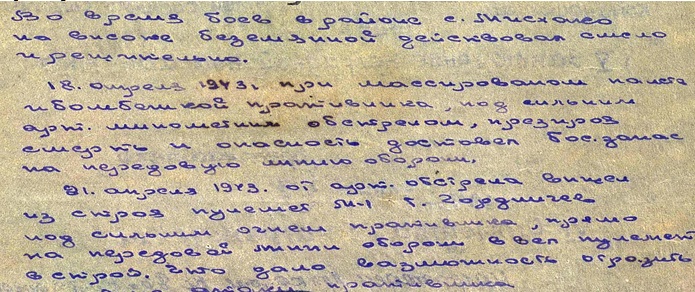 Во время боев в районе с. Мысхако
на высоте беземянной действовал смело
и решительно.
18. апреля 1943г. при массированом налете
и бомбежкой противника, под сильным
арт. минометным обстрелом, презирая
смерть и опасность доставел боезапас
на передовую линию обороны.
21. апреля 1943. от арт. обстрела вышел
из строя пулемет М-1 т. Гордничев
под сильным огнем противника, прямо
на передовой лини обороны ввел пулемет
в строя. Что дало возможность отразить
атаки противника